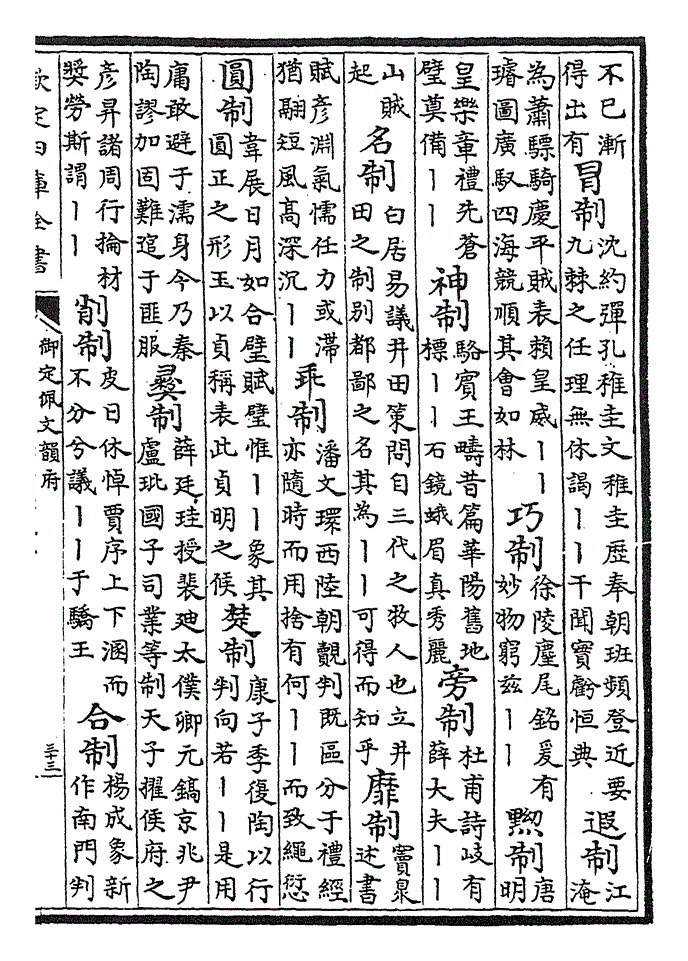 不已漸
得出有
冒制
沈約彈孔稚圭文稚圭歷奉朝班頻登近要
九棘之任理無休謁丨丨干聞實虧恒典
遐制
江
淹
為蕭驃騎慶平賊表賴皇威丨丨
璿圖廣馭四海競順其會如林
巧制
徐陵麈尾銘爰有
妙物窮兹丨丨
黙制
唐
明
皇樂章禮先蒼
璧奠備丨丨
神制
駱賓王疇昔篇華陽舊地
標丨丨石鏡蛾眉真秀麗
旁制
杜甫詩岐有
薛大夫丨丨
山賊
起
名制
白居易議井田策問自三代之教人也立井
田之制别都鄙之名其為丨丨可得而知乎
靡制
竇臮
述書
賦彦淵氣懦任力或滯
猶翮短風高深沉丨丨
乖制
潘文環西陸朝覿判既區分于禮經
亦隨時而用捨有何丨丨而致繩愆
圓制
韋展日月如合璧賦璧惟丨丨象其
圓正之形玉以貞稱表此貞明之候
楚制
康子季復陶以行
判向若丨丨是用
庸敢避于濡身今乃秦
陶謬加固難逭于匪服
彛制
薛廷珪授裴廸太僕卿元鎬京兆尹
盧玭國子司業等制天子擢侯府之
彦昇諸周行掄材
奬勞斯謂丨丨
削制
皮日休悼賈序上下溷而
不分兮議丨丨于驕王
合制
楊成象新
作南門判
欽定四庫全書
御定佩文韻府
三十三